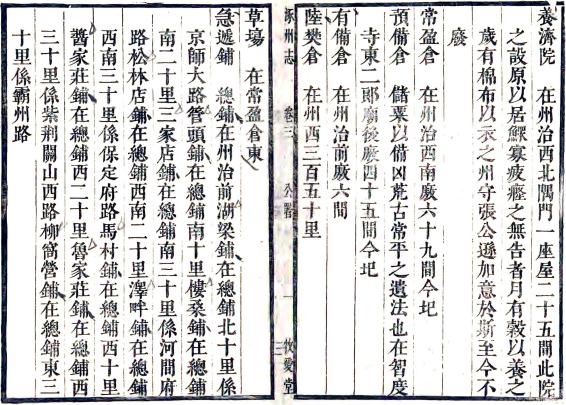 養濟院　在州治西北隅門一座屋二十五間此院
之設原以居鰥寡疲癃之無告者月有穀以養之
歲有棉布以衣之州守張公遜加意於斯至今不
廢
常盈倉　在州治西南廒六十九間今圮
預備倉　儲粟以備凶荒古常平之遺法也在智度
寺東二郎廟後廒四十五間今圮
有備倉　在州治前廒六間
陸樊倉　在州西三百五十里
涿州志　卷三　公署　一　牧愛堂
草場　在常盈倉東
急遞鋪　總鋪在州治前湖梁鋪在總鋪北十里係
京師大路管頭鋪在總鋪南十里樓桑鋪在總鋪
南二十里三家店鋪在總鋪南三十里係河間府
路松林店鋪在總鋪西南二十里澤畔鋪在總鋪
西南三十里係保定府路馬村鋪在總鋪西十里
醬家莊鋪在總鋪西二十里魯家莊鋪在總鋪西
三十里係紫荊關山西路柳窩營鋪在總鋪東三
十里係霸州路